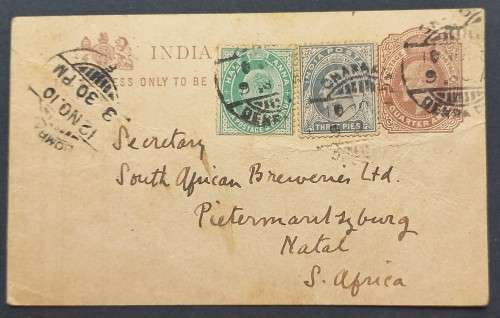 INDIA
ESS ONLY TO BE
HALF ANNA
POSTAGE
INDIA POSTAGE
THREE PIES
QUARTER
12 NO. 10
3 30 PM
Secretary
South African Breweries Ltd.
Pietermaritzburg
Natal
S. Africa